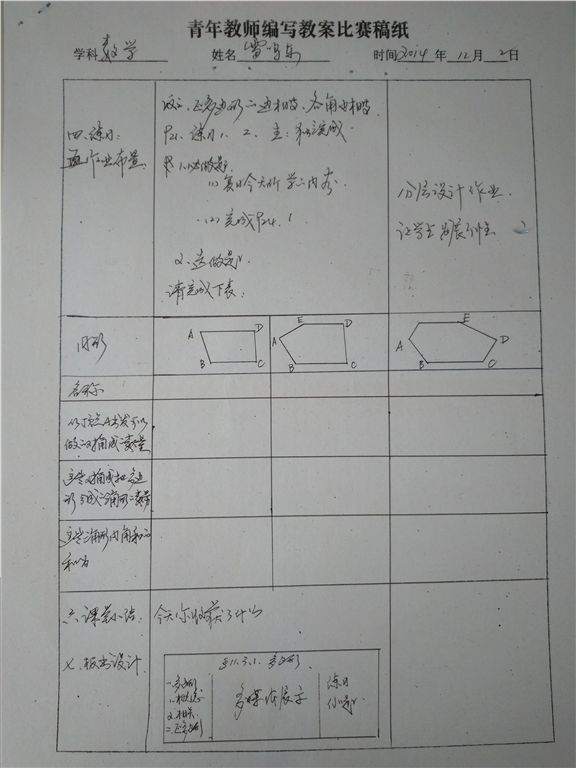 青年教师编写教案比赛稿纸
学科 数学 姓名 时间 2014 年 12 月 2 日
四、练习:
五、作业布置:
正多边形:边相等、各角也相等.
P21、练习1、2、生:独立完成
1、必做题:
(1)复习今天所学的内容.
(2)完成P24.1
2、选做题:
请完成下表:
分层设计作业.
让学生
图形
A D B C
E A D B C
E A D B C
名称
以顶点A出发可以
做的对角线条数
这些对角线把多边
形分成三角形的条数
这些三角形内角和的
和为
六、课堂小结:
今天你收获了什么
七、板书设计
§11.3.1. 多边形.
一、多边形
1.概念
2.相关
二、正多边形
多媒体展示
练习